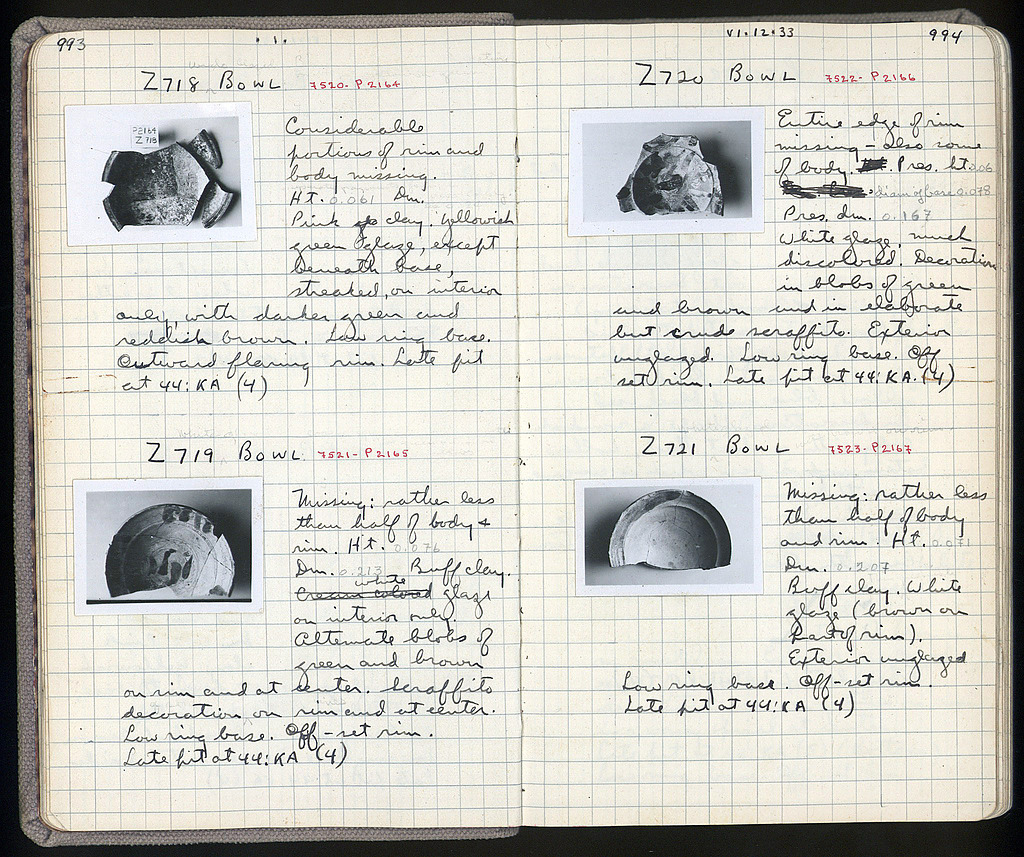 993
Z718 Bowl 7520- P2164
P2164
Z 718
Considerable
portions of rim and
body missing.
Ht. 0.061 Dm.
Pink clay. Yellowish
green glaze, except
beneath base,
streaked, on interior
only, with darker green and
reddish brown. Low ring base.
Outward flaring rim. Late pit
at 44:KA (4)
Z719 Bowl 7521- P2165
Missing: rather less
than half of body +
rim. Ht. 0.076
Dm. 0.213 Buff clay.
white
Cream colored glaze
on interior only.
Alternate blobs of
green and brown
on rim and at center. Scraffito
decoration on rim and at center.
Low ring base. Off-set rim.
Late pit at 44:KA (4)
VI.12.33
994
Z720 Bowl 7522- P2166
Entire edge of rim
missing - also some
of body. Pres. ht. 0.06
diam of base 0.078
Pres. dm. 0.167
White glaze, much
discolored. Decoration
in blobs of green
and brown and in elaborate
but crude scraffito. Exterior
unglazed. Low ring base. Off
set rim. Late pit at 44:KA. (4)
Z721 Bowl 7523- P2167
Missing: rather less
than half of body
and rim. Ht. 0.071
Dm. 0.207
Buff clay. White
glaze (brown on
part of rim).
Exterior unglazed
Low ring base. Off-set rim.
Late pit at 44:KA (4)